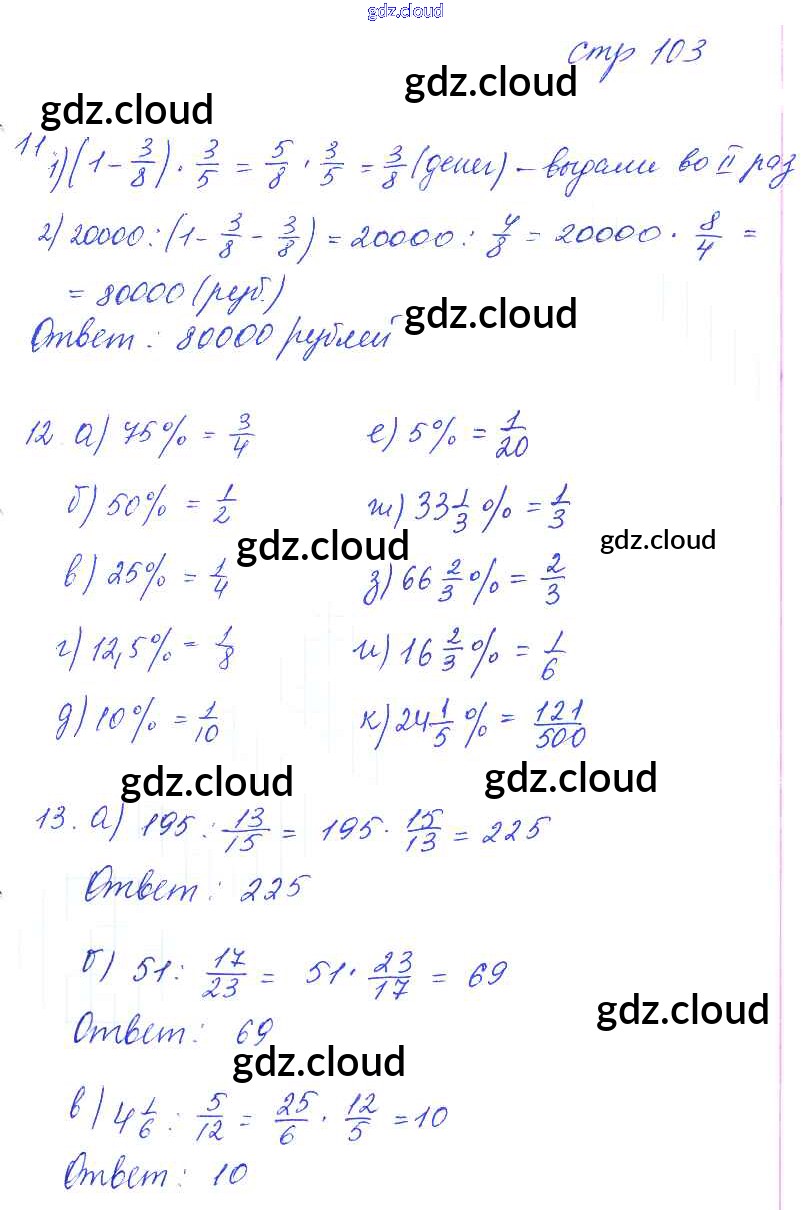 gdz.cloud
стр 103
gdz.cloud gdz.cloud
11 1) (1 - 3/8) · 3/5 = 5/8 · 3/5 = 3/8 (денег) - выдали во II раз
2) 20000 : (1 - 3/8 - 3/8) = 20000 : 4/8 = 20000 · 8/4 =
= 80000 (руб.)
gdz.cloud
Ответ: 80000 рублей
12. а) 75% = 3/4 е) 5% = 1/20
б) 50% = 1/2 ж) 33 1/3 % = 1/3
gdz.cloud gdz.cloud
в) 25% = 1/4 з) 66 2/3 % = 2/3
г) 12,5% = 1/8 и) 16 2/3 % = 1/6
д) 10% = 1/10 к) 24 1/5 % = 121/500
gdz.cloud gdz.cloud
13. а) 195 : 13/15 = 195 · 15/13 = 225
Ответ: 225
б) 51 : 17/23 = 51 · 23/17 = 69
gdz.cloud
Ответ: 69
gdz.cloud
в) 4 1/6 : 5/12 = 25/6 · 12/5 = 10
Ответ: 10